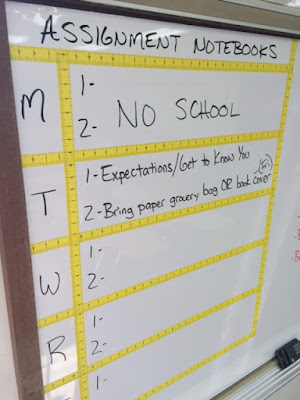 ASSIGNMENT NOTEBOOKS
M
1-
2-
NO SCHOOL
T
1-Expectations/Get to Know You
2-Bring paper grocery bag OR book cover
W
1-
2-
R
1-
2-
1-